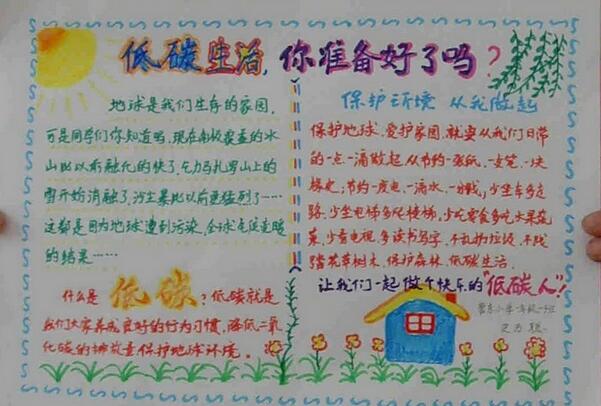 低碳生活,你准备好了吗?
地球是我们生存的家园,
可是同学们你知道吗,现在南极覆盖的冰
山比以前融化的快了,乞力马扎罗山上的
雪开始消融了,沙尘暴比以前更猛烈了……
这都是因为地球遭到污染,全球气候变暖
的结果……
什么是低碳?低碳就是
我们大家养成良好的行为习惯,降低二氧
化碳的排放量保护地球环境。
保护环境 从我做起
保护地球、爱护家园,就要从我们日常
的一点一滴做起,从节约一张纸、一支笔、一块
橡皮;节约一度电、一滴水、一分钱;少坐车多走
路,少坐电梯多爬楼梯,少吃零食多吃水果蔬
菜,少看电视,多读书写字,不乱扔垃圾,不践
踏花草树木,保护森林,低碳生活。
让我们一起做个快乐的"低碳人"!
小学一年级一班